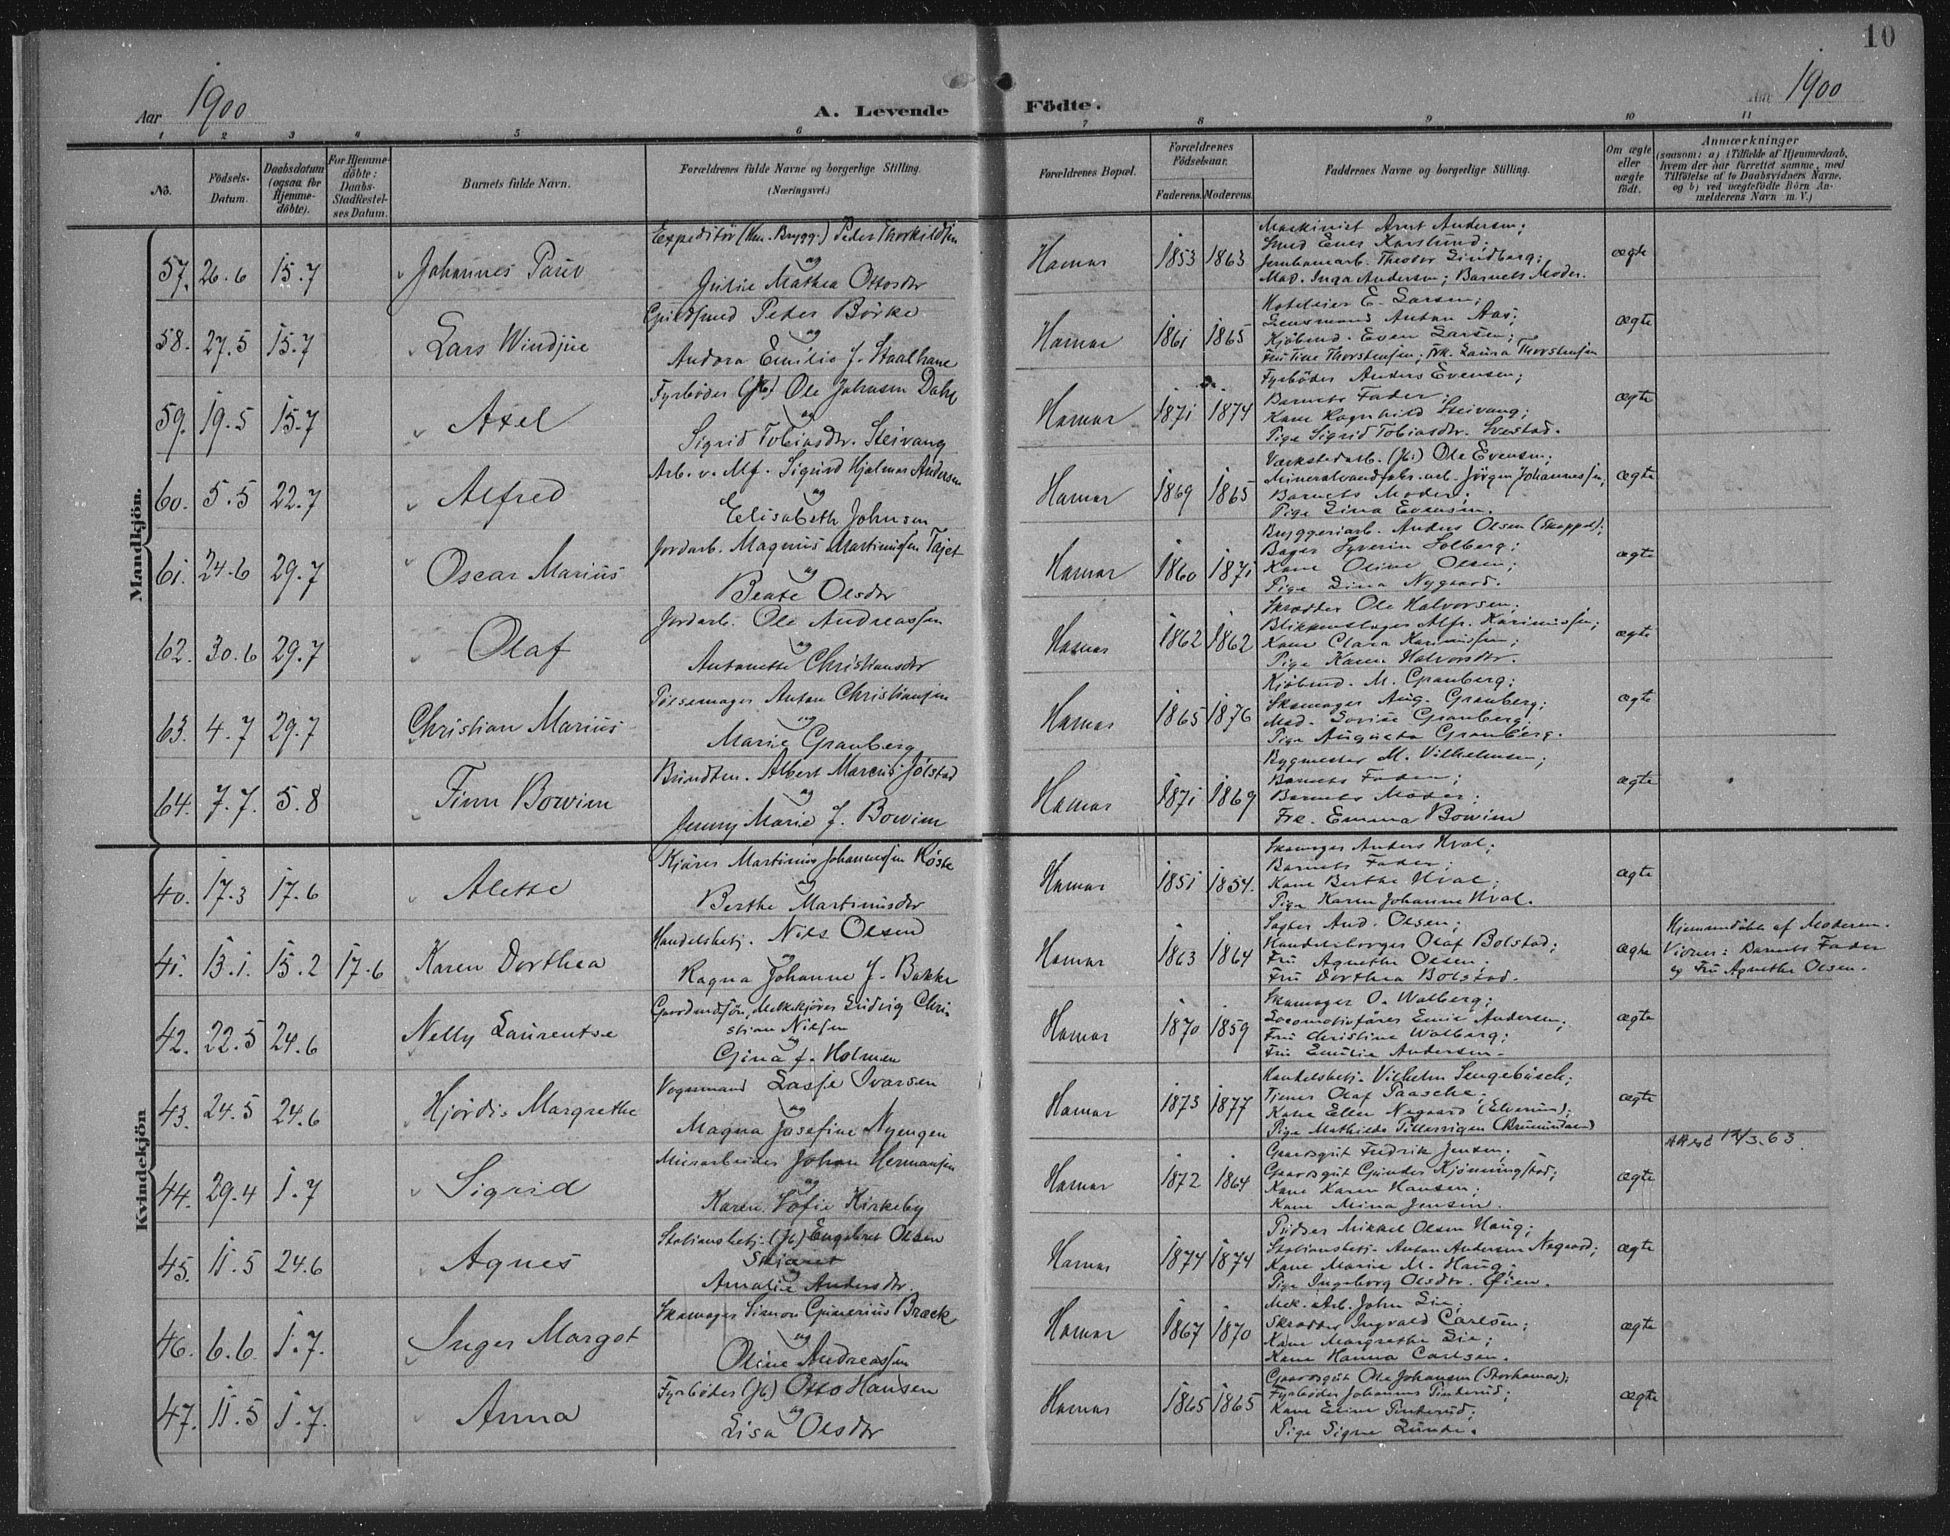 10
Aar 1900
A. Levende Födte.
Aar 1900
1 2 3 4 5 6 7 8 9 10 11
No.
Födsels-Datum.
Daabsdatum (ogsaa for Hjemme-döbte).
For Hjemme-döbte: Daabs-Stadfæstel-ses Datum.
Barnets fulde Navn.
Forældrenes fulde Navne og borgerlige Stilling. (Næringsvei.)
Forældrenes Bopæl.
Forældrenes Födselsaar.
Faderens. Moderens.
Faddernes Navne og borgerlige Stilling.
Om ægte eller uægte födt.
Anmærkninger
(saasom: a) i Tilfælde af Hjemmedaab, hvem der har forrettet samme, med Tilföielse af to Daabsvidners Navne, og b) ved uægtefödte Börn An-melderens Navn m. V.)
Mandkjön.
57. 26.6 15.7 Johannes Paul
Expeditör (Ham. Brygg.) Peder Thorkildsen
og
Julie Mathea Ottosdtr
Hamar 1853 1863
Maskinist Arnt Andersen;
Smed Enes Karslund;
Jernbanearb. Theodor Lindberg;
Mad. Inga Andersen; Barnets Moder.
ægte
58. 27.5 15.7 Lars Windjue
Guldsmed Peder Börke
og
Andora Emilie f. Staalhane
Hamar 1861 1865
Hoteleier E. Larsen;
Lensmand Anton Aas;
Kjöbmd. Even Larsen;
Fru Tine Thorstensen; Frk. Laura Thorstensen
ægte
59. 19.5 15.7 Axel
Fyrböder (Jb.) Ole Johnsen Dahl
og
Sigrid Tobiasdtr. Steivang
Hamar 1871 1874
Fyrböder Anders Evensen;
Barnets Fader;
Kone Ragnhild Steivang;
Pige Sigrid Tobiasdtr. Svestad.
ægte
60. 5.5 22.7 Alfred
Arb. v. Mf. Sigurd Hjalmar Andersen
og
Elisabeth Johnsen
Hamar 1869 1865
Værkstedarb. (Jb.) Ole Evensen;
Mineralvandfabr. arb. Jörgen Johannessen;
Barnets Moder;
Pige Lina Evensen.
ægte
61. 24.6 29.7 Oscar Marius
Jordarb. Magnus Martinusen Tajet
og
Beate Olsdtr
Hamar 1860 1871
Bryggeriarb. Anders Olsen (Skappel);
Bager Syverin Solberg;
Kone Oline Olsen;
Pige Dina Nygaard.
ægte
62. 30.6 29.7 Olaf
Jordarb. Ole Andreassen
og
Antonette Christiansdtr
Hamar 1862 1862
Skrædder Ole Halvorsen;
Blikkenslager Alfr. Karinussen;
Kone Clara Karinussen;
Pige Karen Halvorsdtr.
ægte
63. 4.7 29.7 Christian Marius
Pölsemager Anton Christiansen
og
Marie Granberg
Hamar 1865 1876
Kjöbmd. M. Granberg;
Skomager Aug. Granberg;
Mad. Lovise Granberg;
Pige Augusta Granberg.
ægte
64. 7.7. 5.8 Finn Bowim
Bundtm. Albert Marcus Jölstad
og
Jenny Marie f. Bowim
Hamar 1871 1869
Bygmester M. Vilhelmsen;
Barnets Fader;
Barnets Moder;
Frk. Emma Bowim
ægte
Kvindekjön
40. 17.3 17.6 Alette
Kjörer Martinus Johannesen Röste
og
Berthe Martinusdtr
Hamar 1851 1854.
Skomager Anders Hval;
Barnets Fader;
Kone Berthe Hval;
Pige Karen Johanne Hval.
ægte
41. 13.1. 15.2 17.6 Karen Dorthea
Handelsbetj. Nils Olsen
og
Ragna Johanne f. Bakke
Hamar 1863 1864
Sagfer And. Olsen;
Handelsborger Olaf Bolstad;
Fru Agnethe Olsen.
Fru Dorthea Bolstad.
ægte
Hjemmedöbt af Moderen.
Vidner: Barnets Fader
og Fru Agnethe Olsen.
42. 22.5 24.6 Nelly Laurentse
Gaardmdsön, Melkekjörer Ludvig Chri
stian Nilsen
og
Gina f. Holmen
Hamar 1870 1859
Skomager O. Walberg;
Locomotivförer Emil Andersen;
Fru Christine Walberg;
Fru Emilie Andersen.
ægte
43. 24.5 24.6 Hjördis Margrethe
Vognmand Lasse Ivarsen
og
Magna Josefine Nyengen
Hamar 1873 1877
Handelsbetj. Vilhelm Sengebusch;
Tjener Olaf Paasche;
Kone Ellen Nygaard (Elverum);
Pige Mathilde
ægte
44. 29.4 1.7 Sigrid
Murarbeider Johan Hermansen
og
Karen Sofie Kirkeby
Hamar 1872 1864
Gaardsgut Fredrik Jensen;
Gaardsgut Gunder Kjönningstad;
Kone Karen Hansen;
Kone Mina Jensen.
ægte
Attest 12/3.63
45. 11.5 24.6 Agnes
Stationsbetj. (Jb.) Engebret Olsen
og
Amalie Andersdtr.
Hamar 1874 1874
Pudser Mikkel Olsen Haug;
Stationsbetj. Anton Andersen Nygaard;
Kone Marie M. Haug;
Pige Ingeborg Olsdtr. Öien.
ægte
46. 6.6. 1.7. Inger Margot
Skomager Simon Gunerius Bræck
og
Oline Andreassen
Hamar 1867 1870
Mek. Arb. John Lie;
Skrædder Ingvald Carlsen;
Kone Margrethe Lie;
Kone Hanna Carlsen.
ægte
47. 11.5 1.7. Anna
Fyrböder (Jb.) Otto Hansen
og
Lisa Olsdtr
Hamar 1865 1865
Gaardsgut Ole Johansen (Storhamar);
Fyrböder Johannes Pinterud;
Kone Eline Pinterud;
Pige Signe Lunde.
ægte